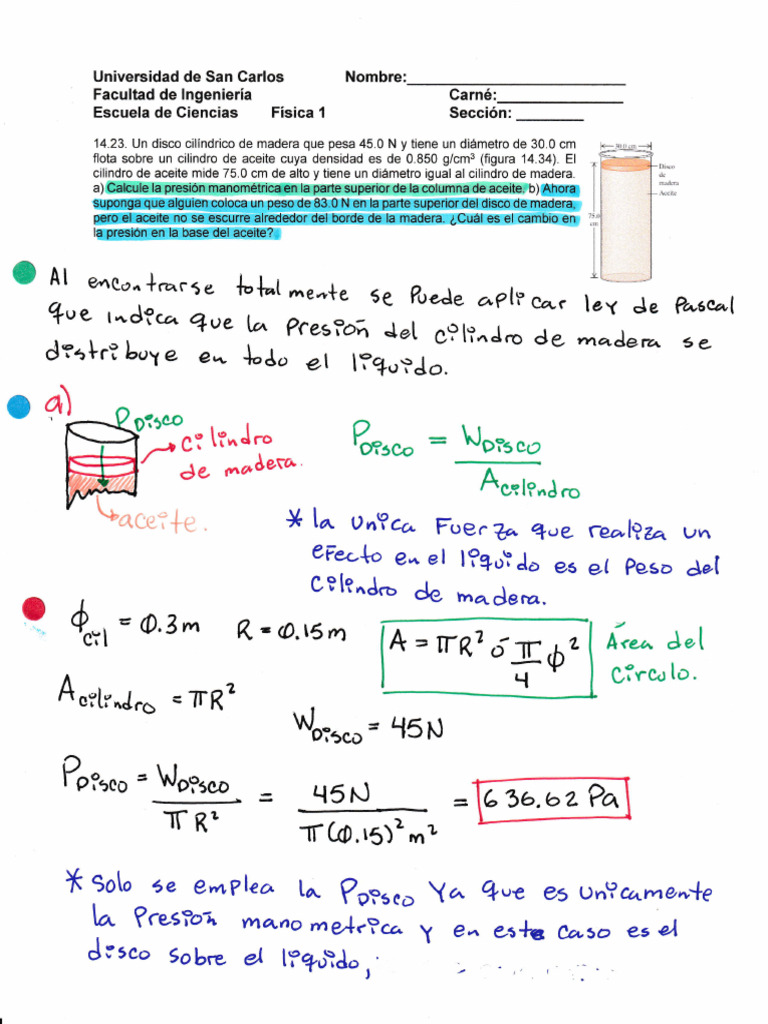 Universidad de San Carlos Nombre:__________________________
Facultad de Ingeniería Carné:_______________
Escuela de Ciencias Física 1 Sección: ________
14.23. Un disco cilíndrico de madera que pesa 45.0 N y tiene un diámetro de 30.0 cm
flota sobre un cilindro de aceite cuya densidad es de 0.850 g/cm³ (figura 14.34). El
cilindro de aceite mide 75.0 cm de alto y tiene un diámetro igual al cilindro de madera.
a) Calcule la presión manométrica en la parte superior de la columna de aceite. b) Ahora
suponga que alguien coloca un peso de 83.0 N en la parte superior del disco de madera,
pero el aceite no se escurre alrededor del borde de la madera. ¿Cuál es el cambio en
la presión en la base del aceite?
30.0 cm
Disco
de
madera
Aceite
75.0
cm
Al encontrarse totalmente se puede aplicar ley de Pascal
que indica que la presión del cilindro de madera se
distribuye en todo el liquido.
a)
PDISCO
cilindro
de madera.
aceite.
PDISCO = WDISCO / Acilindro
* la unica Fuerza que realiza un
efecto en el liquido es el peso del
cilindro de madera.
ϕcil = 0.3m R = 0.15m
A = πR² ó π/4 ϕ²
Área del
circulo.
Acilindro = πR²
WDISCO = 45N
PDISCO = WDISCO / πR² = 45N / π(0.15)² m² = 636.62 Pa
* Solo se emplea la PDISCO Ya que es unicamente
la presión manometrica y en este caso es el
disco sobre el liquido,